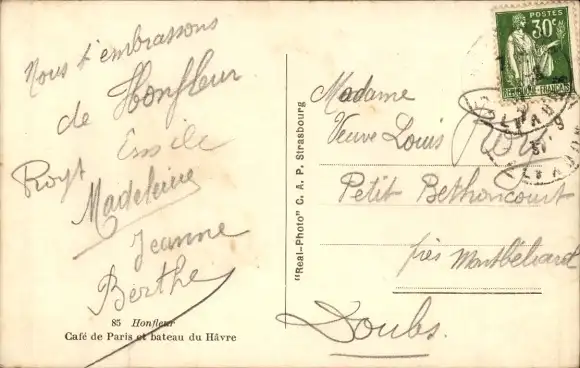 Nous t'embrassons
de Honfleur
Emile
Royt
Madeleine
Jeanne
Berthe
85 Honfleur
Café de Paris et bateau du Hâvre
"Real-Photo" C. A. P. Strasbourg
POSTES
30c
REPUBLIQUE FRANÇAISE
Madame
Veuve Louis Roy
Petit Bethoncourt
près Montbéliard
Doubs.